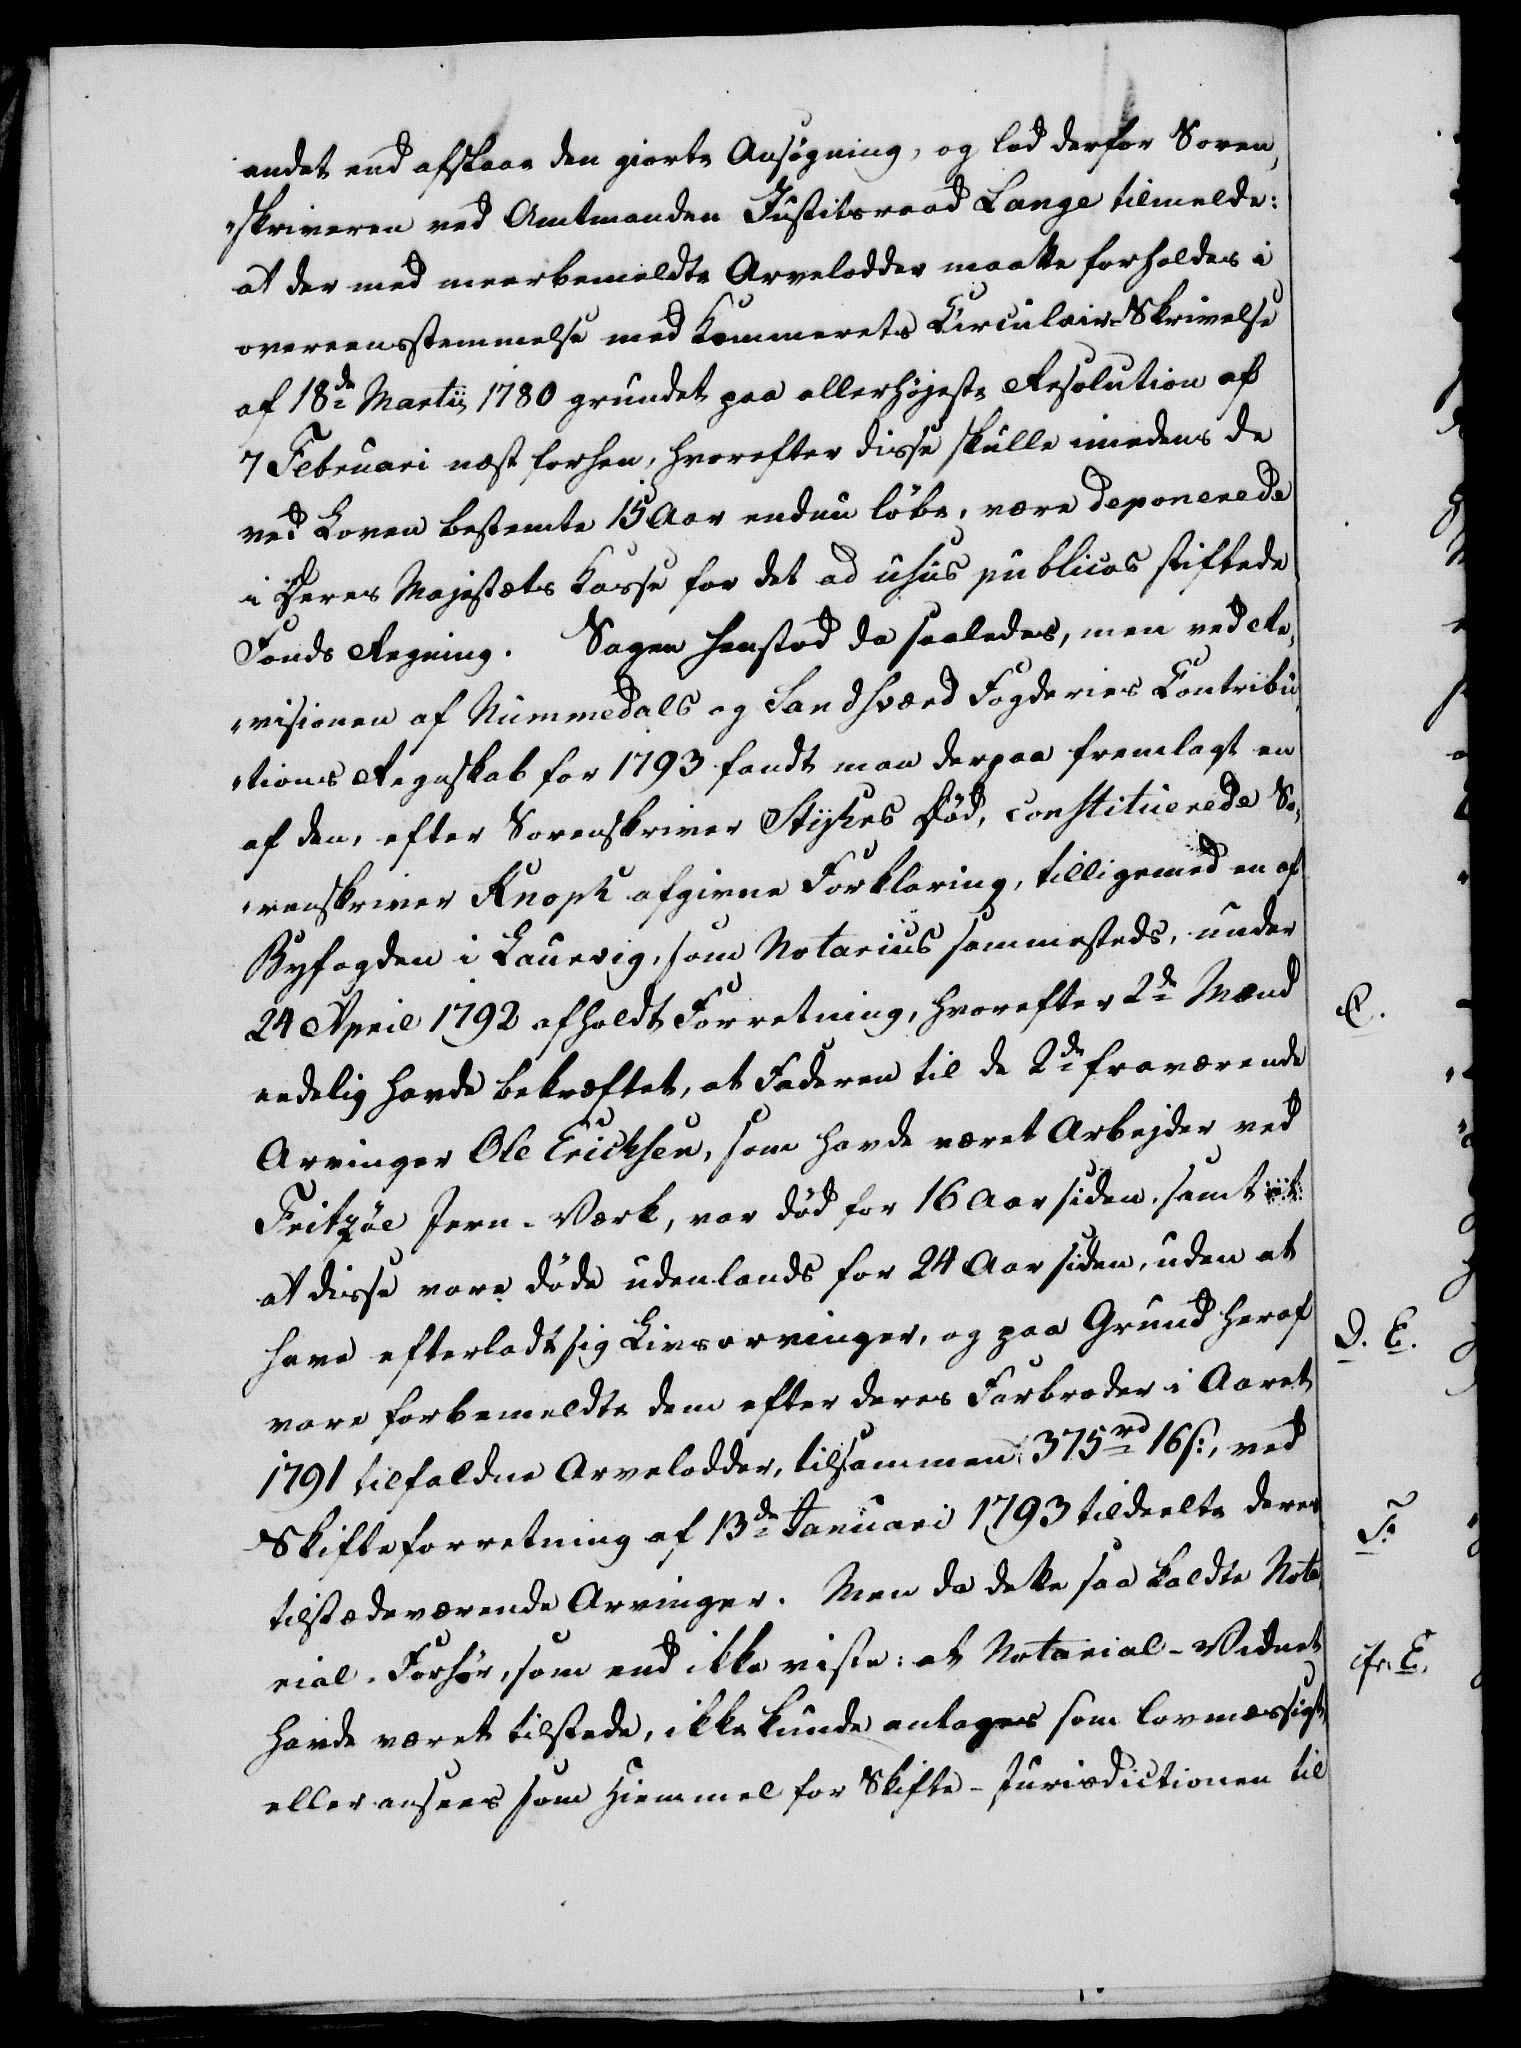 andet end afskaae den giorte Ansøgning, og lod derfor Soren„
„skriveren ved Amtmanden Justitsraad Lange tilmelde:
at der med meerbemeldte Arvelodder maatte forholdes i
overeensstemmelse med Kammerets Circulair-Skrivelse
af 18de Martii 1780 grundet paa allerhøjeste Resolution af
7 Februari næst forhen, hvorefter disse skulle imedens de
ved Loven bestemte 15 Aar endnu løbe, være deponerede
i Deres Majestæts Kasse for det ad usus publicos stiftede
Fonds Regning. Sagen henstod da saaledes, men ved Re„
„visionen af Nummedals og Sandsværd Fogderies Contribu„
„tions Regnskab for 1793 fandt man derpaa fremlagt en
af den, efter Sorenskriver Stykes Død, constituerede So„
„renskriver Knoph afgivne Forklaring, tilligemed en af
Byfogden i Laurvig, som Notarius sammesteds, under
24 April 1792 afholdt Forretning, hvorefter 2de Mænd
C.
eedelig havde bekræftet, at Faderen til de 2de fraværende
Arvinger Ole Erichsen, som havde været Arbejder ved
Fritzøe Jern-Værk, var død for 16 Aar siden, samt
at disse vare døde udenlands for 24 Aar siden, uden at
have efterladt sig Livsarvinger, og paa Grund heraf
D. E.
vare forbemeldte dem efter deres Farbroder i Aaret
1791 tilfaldne Arvelodder, tilsammen 375rd 16s:, ved
Skifteforretning af 13de Januari 1793 tildeelte deres
F.
tilstædeværende Arvinger. Men da dette saa kaldte Nota„
rial-Forhør, som end ikke viste: at Notarial-Vidnet
cfr. E.
havde været tilstede, ikke kunde antages som lovmæssigt,
eller ansees som Hiemmel for Skifte-Jurisdictionen til